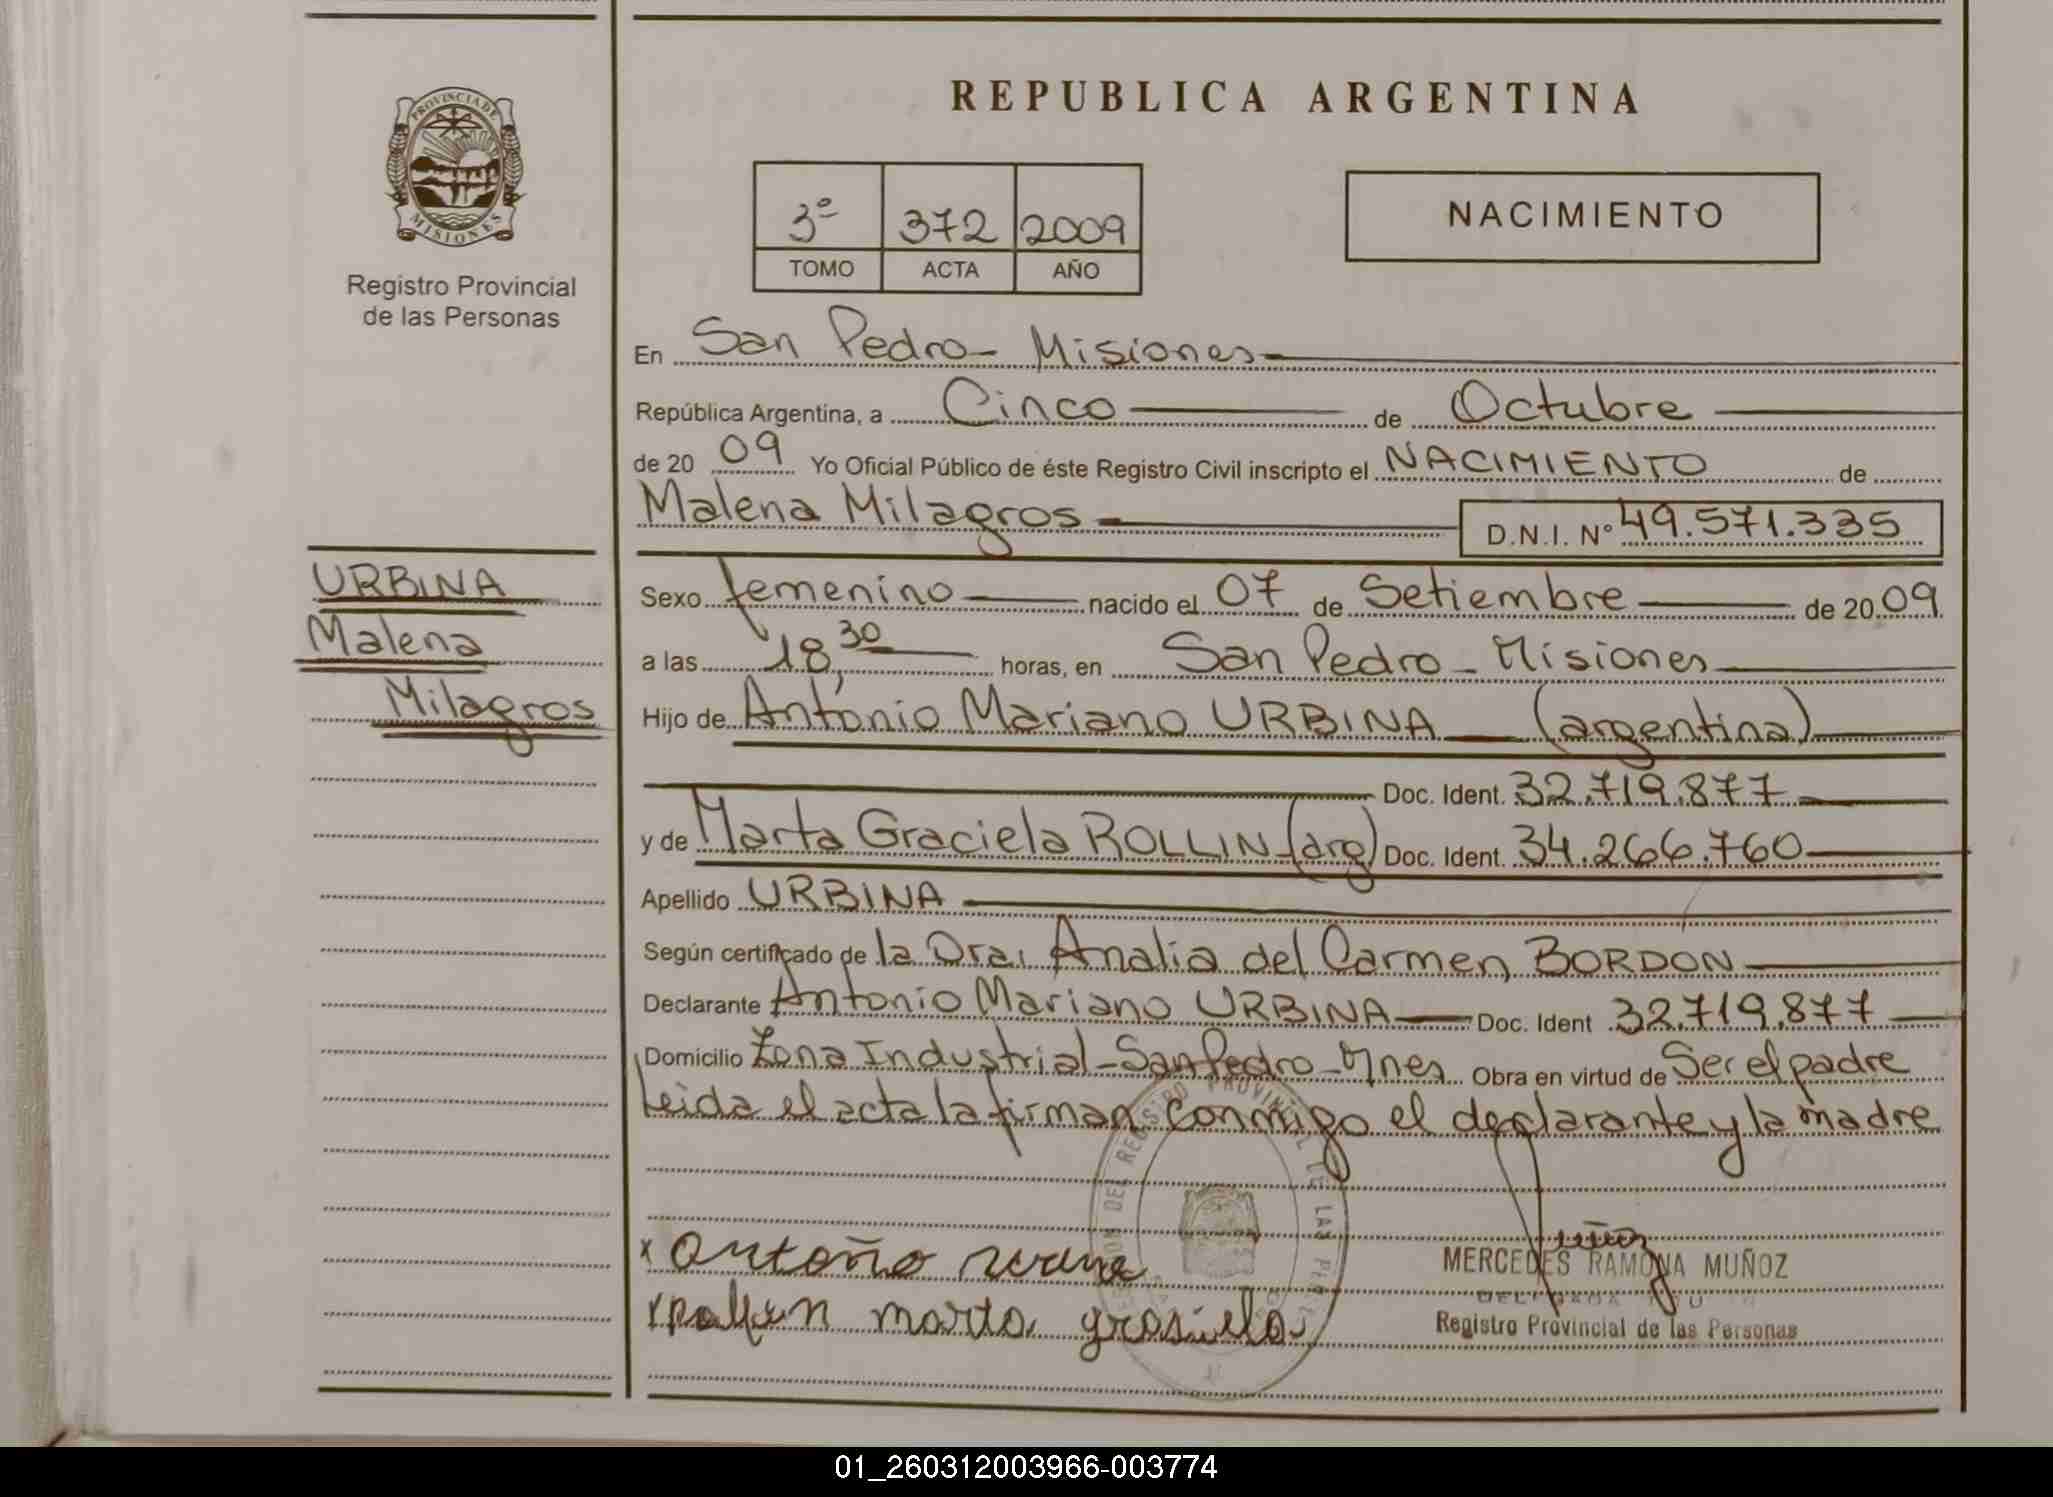 PROVINCIA DE
MISIONES
Registro Provincial
de las Personas
REPUBLICA ARGENTINA
3º 372 2009
TOMO ACTA AÑO
NACIMIENTO
En San Pedro - Misiones
República Argentina, a Cinco de Octubre
de 20 09 Yo Oficial Público de éste Registro Civil inscripto el NACIMIENTO de
Malena Milagros D.N.I. Nº 49.571.335
URBINA
Malena
Milagros
Sexo femenino nacido el 07 de Setiembre de 20 09
a las 18,30 horas, en San Pedro - Misiones
Hijo de Antonio Mariano URBINA (argentina)
Doc. Ident. 32.719.877
y de Marta Graciela ROLLIN (arg) Doc. Ident. 34.266.760
Apellido URBINA
Según certificado de la Dra. Analia del Carmen BORDON
Declarante Antonio Mariano URBINA Doc. Ident 32.719.877
Domicilio Zona Industrial - San Pedro - Mnes Obra en virtud de Ser el padre
Leida el acta la firman conmigo el declarante y la madre
DEL REGISTRO PROVINCIAL DE LAS
x Antoño
x marta grasiela
MERCEDES RAMONA MUÑOZ
Registro Provincial de las Personas
01_260312003966-003774